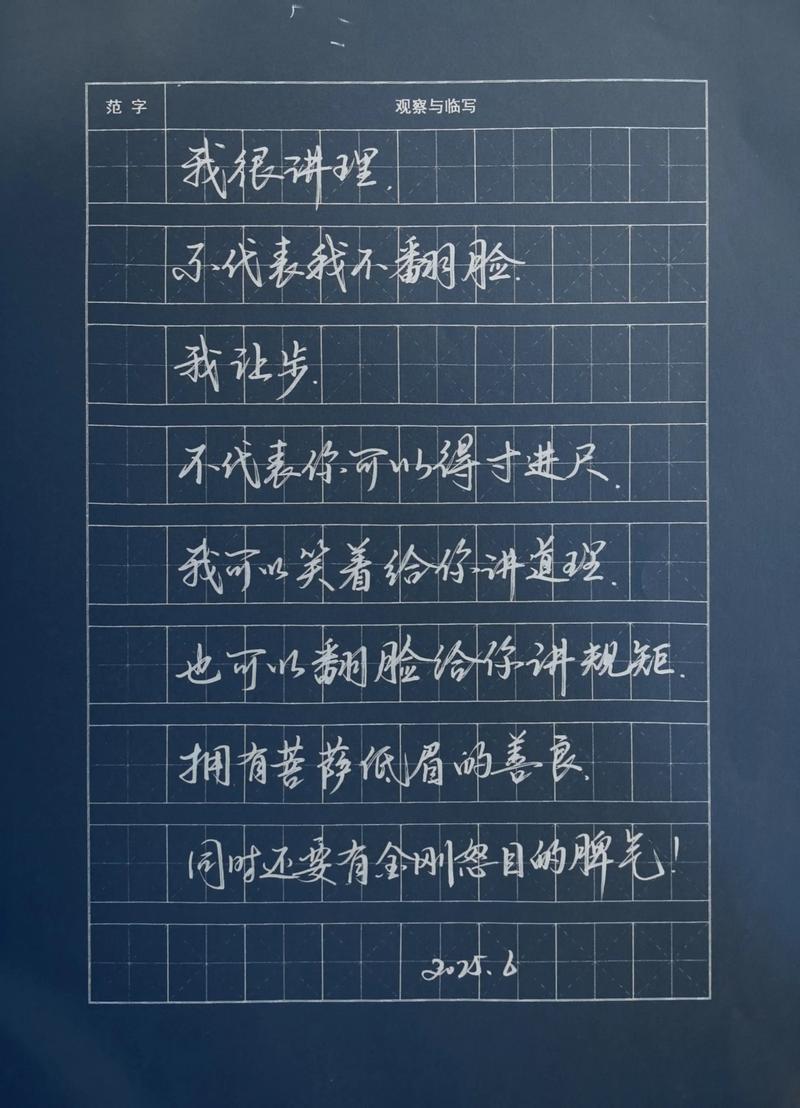 范字 观察与临写
我很讲理.
不代表我不翻脸.
我让步.
不代表你可以得寸进尺.
我可以笑着给你讲道理.
也可以翻脸给你讲规矩.
拥有菩萨低眉的善良.
同时还要有金刚怒目的脾气!
2025.6